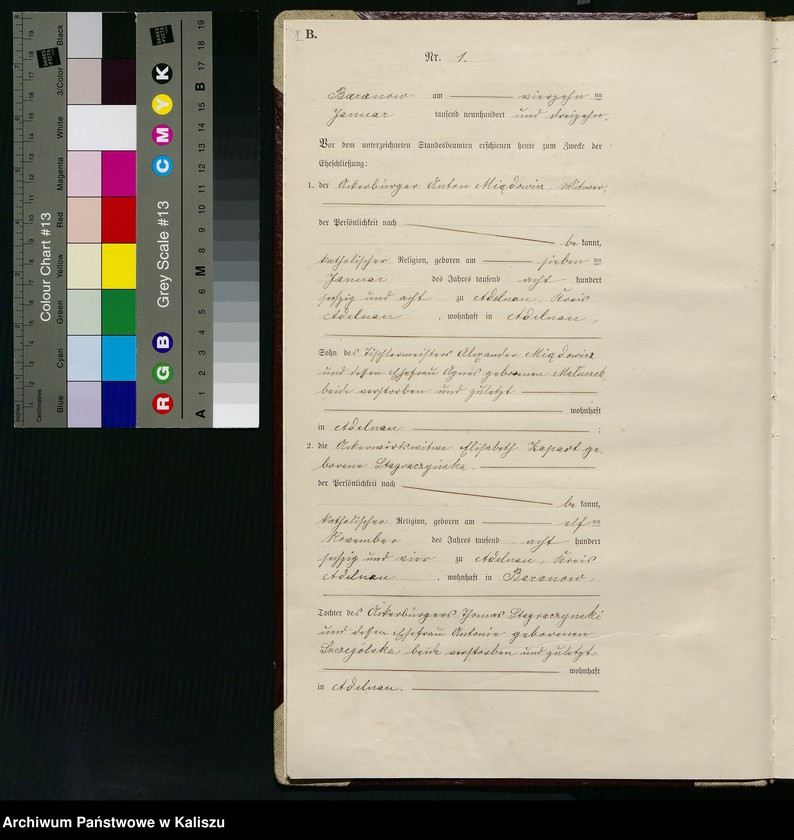 Colour Chart #13
Blue
Cyan
Green
Yellow
Red
Magenta
White
3/Color
Black
Inches
Centimetres
Grey Scale #13
R G B C M Y K
A 1 2 3 4 5 6 M 8 9 10 11 12 13 14 15 B 17 18 19
B.
Nr. 1.
Baranow am vierzehn ten
Januar tausend neunhundert und dreizehn.
Vor dem unterzeichneten Standesbeamten erschienen heute zum Zwecke der
Eheschließung:
1. der Ackerbürger Anton Miądowicz, Witwer,
der Persönlichkeit nach
be kannt,
katholischer Religion, geboren am sieben ten
Januar des Jahres tausend acht hundert
sechzig und acht zu Adelnau, Kreis
Adelnau, wohnhaft in Adelnau,
Sohn des Tischlermeisters Alexander Miądowicz
und dessen Ehefrau Agnes geborenen
beide verstorben und zuletzt
wohnhaft
in Adelnau ;
2. die Ackerwirtswitwe Elisabeth Kapart ge-
borene Stagraczyńska.
der Persönlichkeit nach
be kannt,
katholischer Religion, geboren am elf ten
November des Jahres tausend acht hundert
sechzig und vier zu Adelnau, Kreis
Adelnau, wohnhaft in Baranow,
Tochter des Ackerbürgers Thomas Stagraczynski
und dessen Ehefrau Antonie geborenen
Szczególska beide verstorben und zuletzt
wohnhaft
in Adelnau.
Archiwum Państwowe w Kaliszu